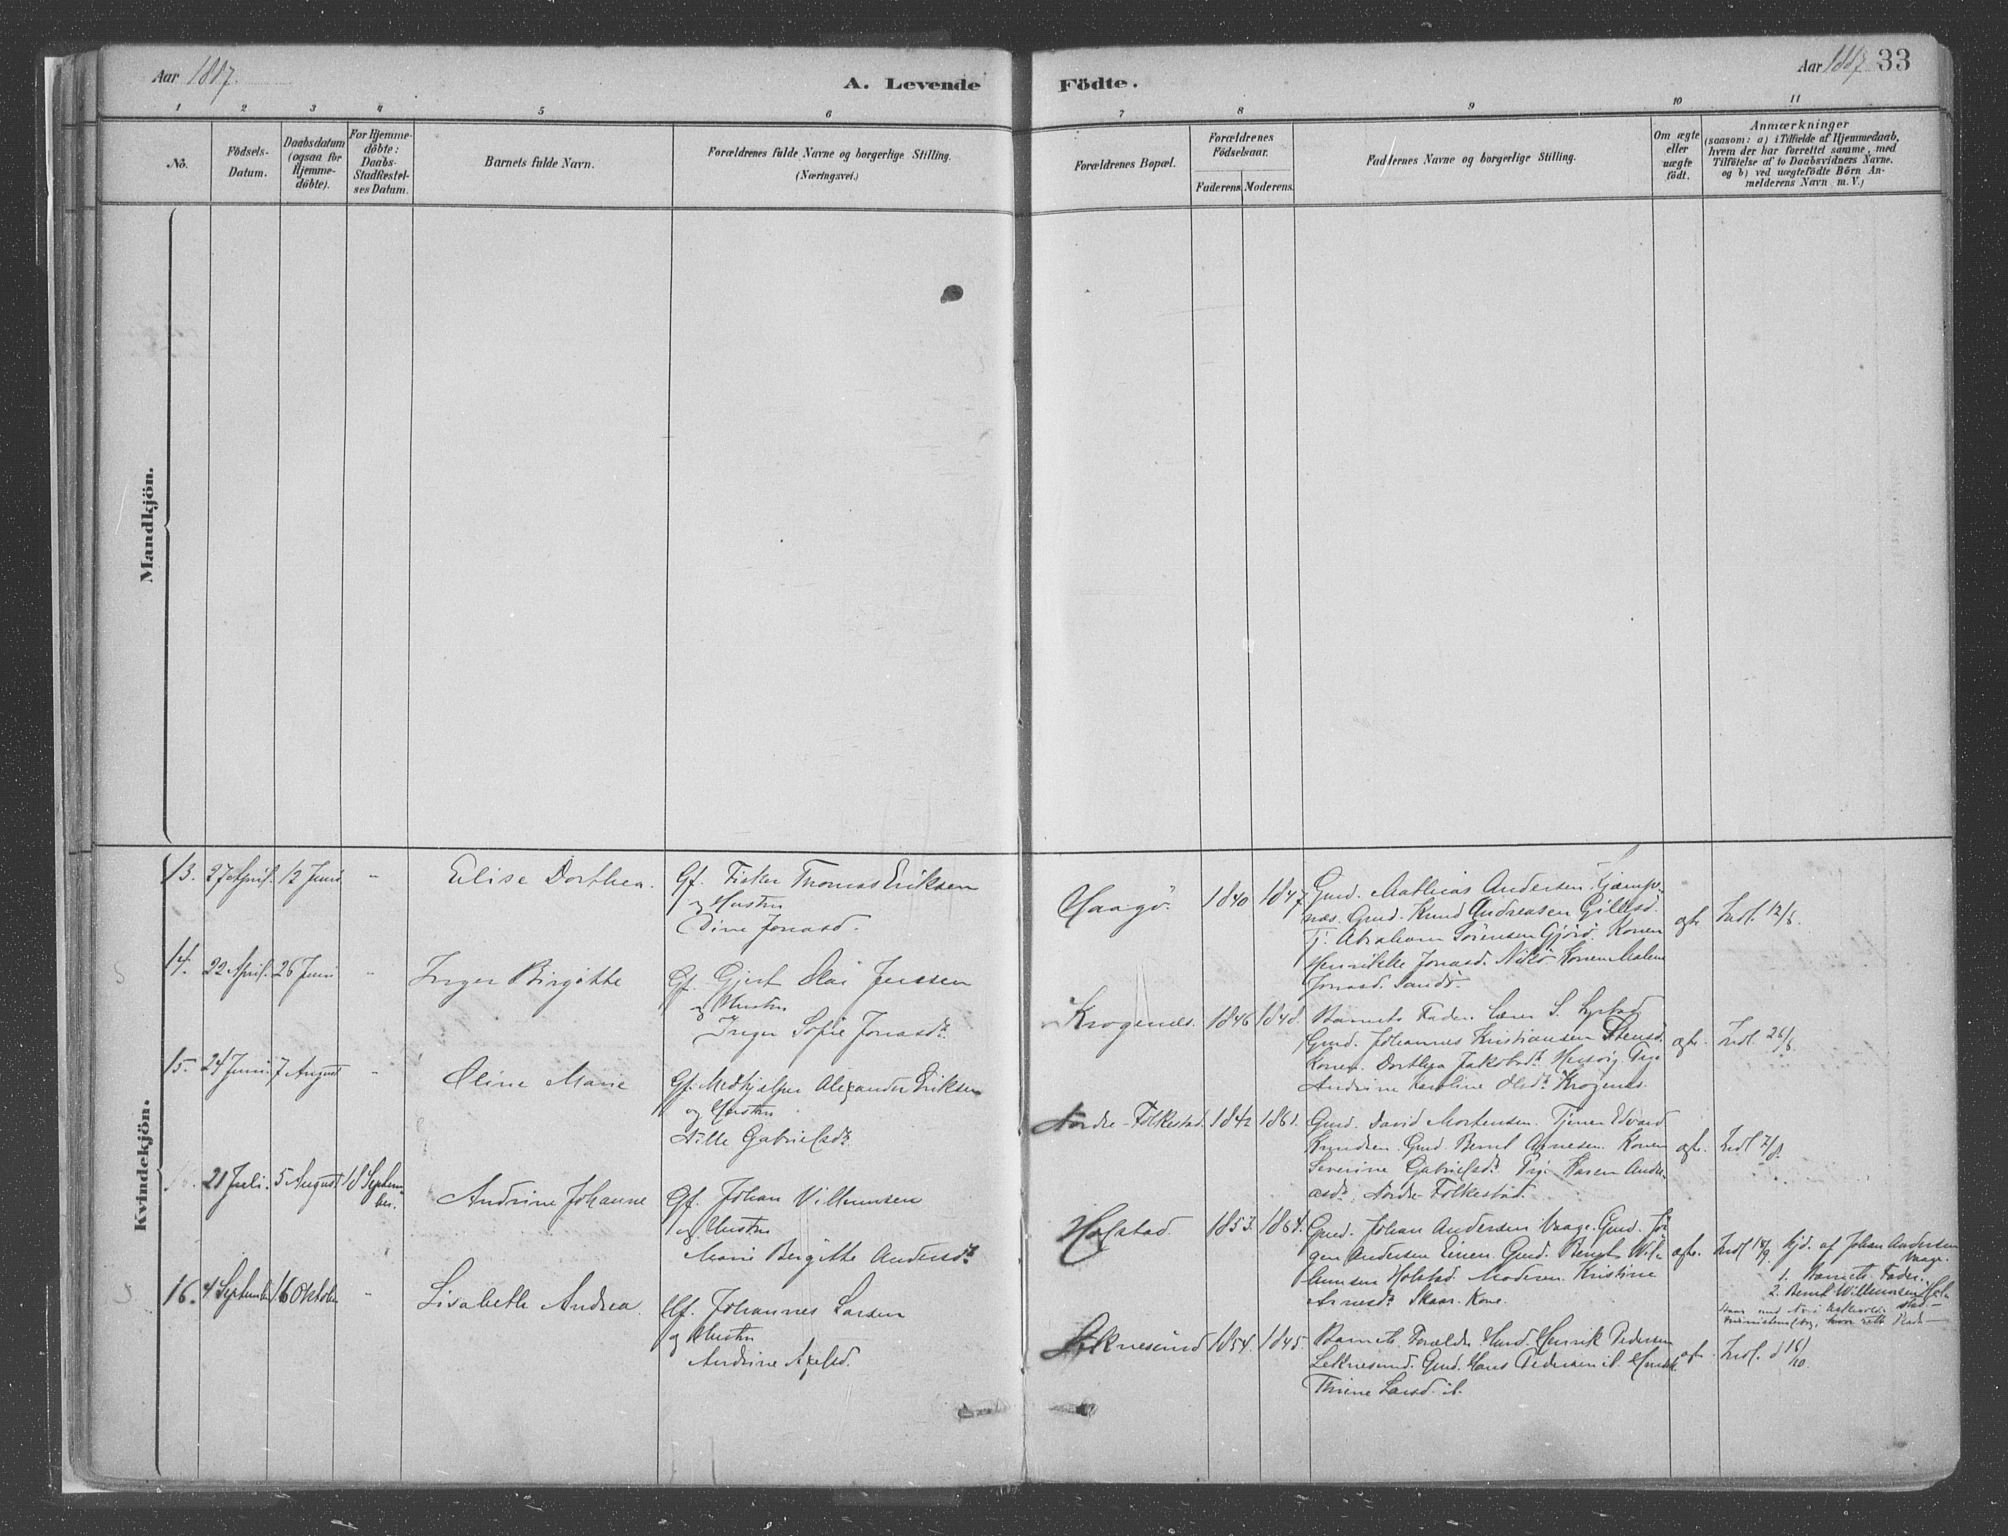 Aar 1887.
A. Levende
Födte.
Aar 1887. 33
1 2 3 4 5 6 7 8 9 10 11
Nö.
Födsels-
Datum.
Daabsdatum
(ogsaa for
Hjemme-
döbte).
For Hjemme-
döbte:
Daabs-
Stadfestel-
ses Datum.
Barnets fulde Navn.
Forældrenes fulde Navne og borgerlige Stilling.
(Næringsvei.)
Forældrenes Bopæl.
Forældrenes
Födselsaar.
Faderens. Moderens.
Faddernes Navne og borgerlige Stilling.
Om ægte
eller
uægte
födt.
Anmærkninger
(saasom: a) i Tilfælde af Hjemmedaab,
hvem der har forrettet samme, med
Tilföielse af to Daabsvidners Navne.
og b) ved uægtefödte Börn An-
melderens Navn m. V.)
Mandkjön.
Kvindekjön.
13. 27 April. 12 Juni " Elise Dorthea. Gf. Fisker Thomas Eriksen
og Hustru
Dine Jonasd.
Haagö. 1840 1847
Gmd. Mathias Andersen Kjæmp-
næs. Gmd. Knud Andreasen
Abraham Sörensen Konen
Henrikke Jonasd. Konen Malene
Jonasd.
ægte Indl. 12/6.
14. 22 April. 26 Juni " Inger Birgitte Gf. Gjert Olai Jenssen
og Hustru
Inger Sofie Jonasdr.
Krogenes. 1846 1848.
Barnets Fader. Lærer S.
Gmd. Johannes Kristiansen
Konen Dorthea Jakobsdr. Pige
Andrine Karoline Olsdr. Krogenes.
ægte. Indl. 26/6.
15. 24 Juni. 7 August " Oline Marie Gf. Medhjelper Alexander Eriksen
og Hustru
Nille Gabrielsdr.
Nordre-Folkestad. 1842 1861.
Gmd. David Mortensen. Tjener Edvard
Knudsen. Gmd. Bernt Arnesen. Konen
Severine Gabrielsdr. Pige Karen Andre-
asdr. Nordre Folkestad.
ægte. Indl. 7/8.
21 Juli. 5 August 18 Septem-
ber. Andrine Johanne Gf. Johan Vilhumsen
og Hustru
Marie Bergitte Andersdr.
Holstad. 1853. 1864.
Gmd. Johan Andersen Vaage. Gmd. Jör-
gen Andersen Einen. Gmd. Bernt Vil-
humsen Holstad. Moderen. Kristine
Arnesdr. Skaar. Kone.
ægte. Indl 18/9 hjd. af Johan Andersen
Vaage.
1. Barnets Fader.
2. Bernt Willumsen Hol-
stad.
16. 4 September 16 Oktober " Lisabeth Andrea. Gf. Johannes Larsen
og Hustru
Andrine Axelsd.
Leknesund 1854. 1845.
Barnets Forældre. Gmd. Henrik Pedersen
Leknesund. Gmd. Hans Pedersen ib. Hustr.
Thrine Larsd. ib.
ægte. Indl. d 16/10.